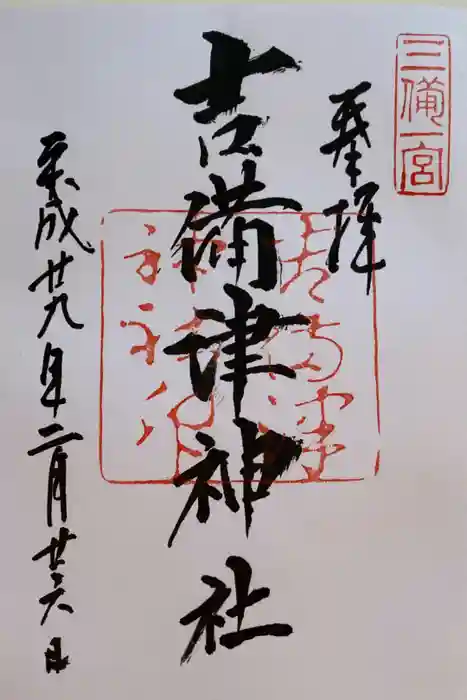 三備一宮
奉拝
吉備津神社
平成廿九年二月廿六日